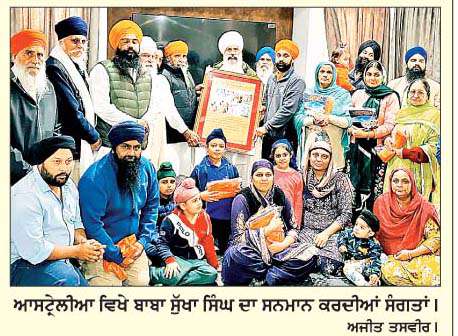 ਆਸਟ੍ਰੇਲੀਆ ਵਿਖੇ ਬਾਬਾ ਸੁੱਖਾ ਸਿੰਘ ਦਾ ਸਨਮਾਨ ਕਰਦੀਆਂ ਸੰਗਤਾਂ।
ਅਜੀਤ ਤਸਵੀਰ।